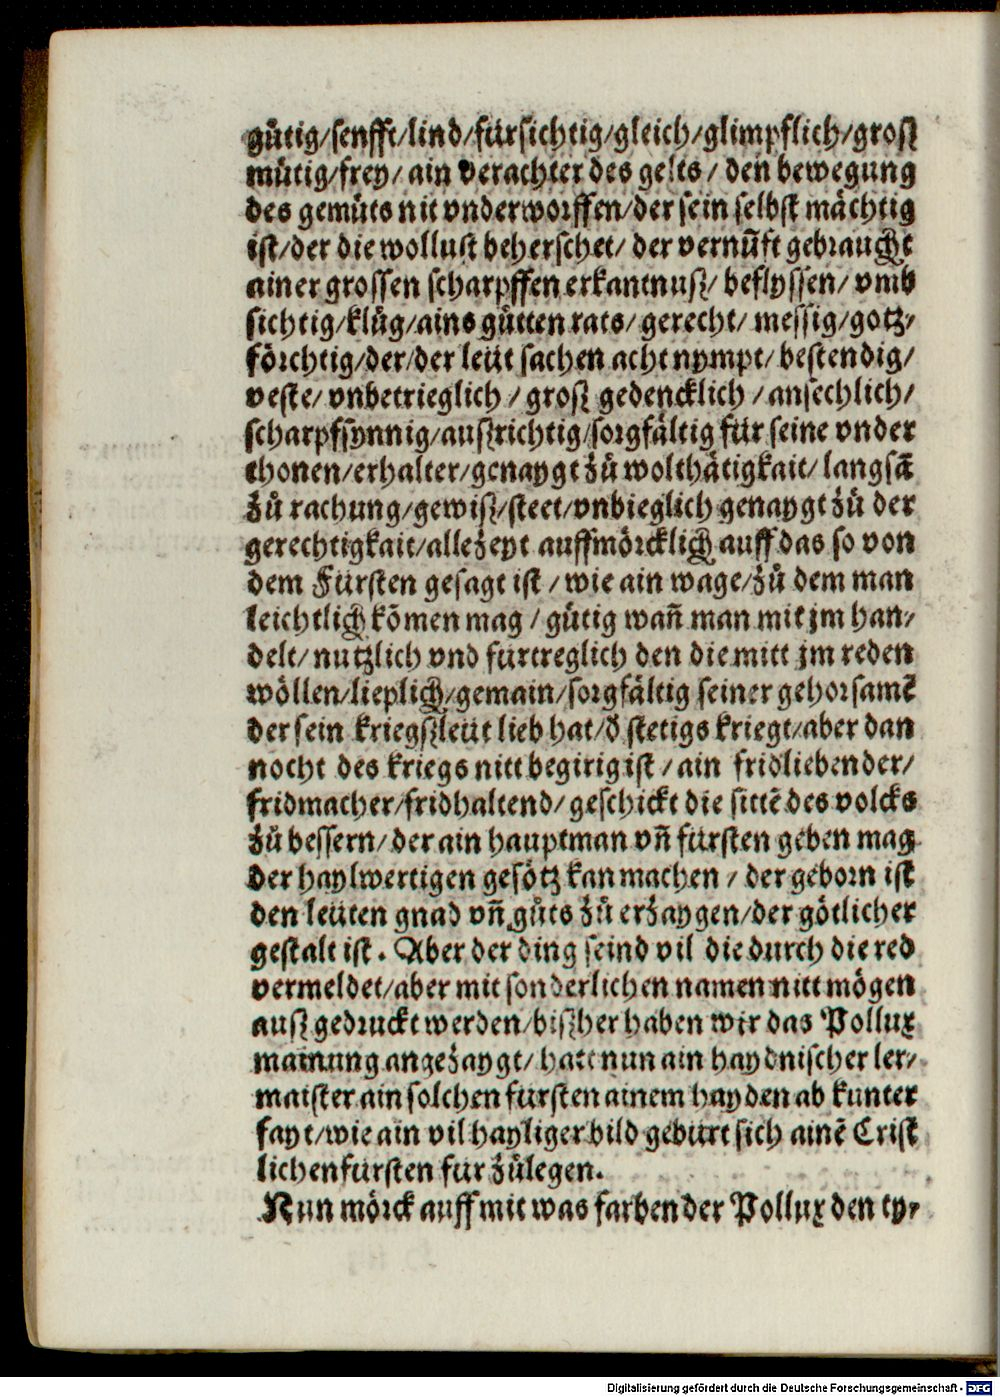 gůtig/senfft/lind/fürsichtig/gleich/glimpflich/groſz
mütig/frey/ ain verachter des gelts / den bewegung
des gemüts nit vnderworffen/der sein selbst mächtig
ist/der die wollust beherschet/ der vernūft gebraucht
ainer grossen scharpffen erkantnuſz/ beflyssen/ vmb
sichtig/klůg/ains gůtten rats/ gerecht/ messig/gotz⸗
förchtig/der/der leüt sachen acht nympt/ bestendig/
veste/ vnbetrieglich / groſz gedencklich / ansechlich/
scharpfsynnig/auſzrichtig/sorgfältig für seine vnder
thonen/erhalter/genaygt zů wolthätigkait/ langsā
zů rachung/gewiſz/steet/vnbieglich genaygt zů der
gerechtigkait/allezeyt auffmörcklich auff das so von
dem Fürsten gesagt ist / wie ain wage/zů dem man
leichtlich kōmen mag / gütig wañ man mit jm han⸗
delt/ nutzlich vnd fürtreglich den die mitt jm reden
wöllen/lieplich/gemain/sorgfältig seiner gehorsamē
der sein kriegſzleüt lieb hat/ð stetigs kriegt/aber dan
nocht des kriegs nitt begirig ist / ain fridliebender/
fridmacher/fridhaltend/ geschickt die sittē des volcks
zů bessern/ der ain hauptman vñ fürsten geben mag
der haylwertigen gesötz kan machen / der geborn ist
den leüten gnad vñ gůts zů erzaygen/der götlicher
gestalt ist. Aber der ding seind vil die durch die red
vermeldet/aber mit sonderlichen namen nitt mögen
auſz gedruckt werden/biſzher haben wir das Pollux
mainung angezaygt/ hatt nun ain haydnischer ler⸗
maister ain solchen fürsten ainem hayden ab kunter
fayt/wie ain vil hayliger bild gebürt sich ainē Crist
lichen fürsten für zůlegen.
Nun mörck auff mit was farben der Pollux den ty⸗
Digitalisierung gefördert durch die Deutsche Forschungsgemeinschaft - DFG